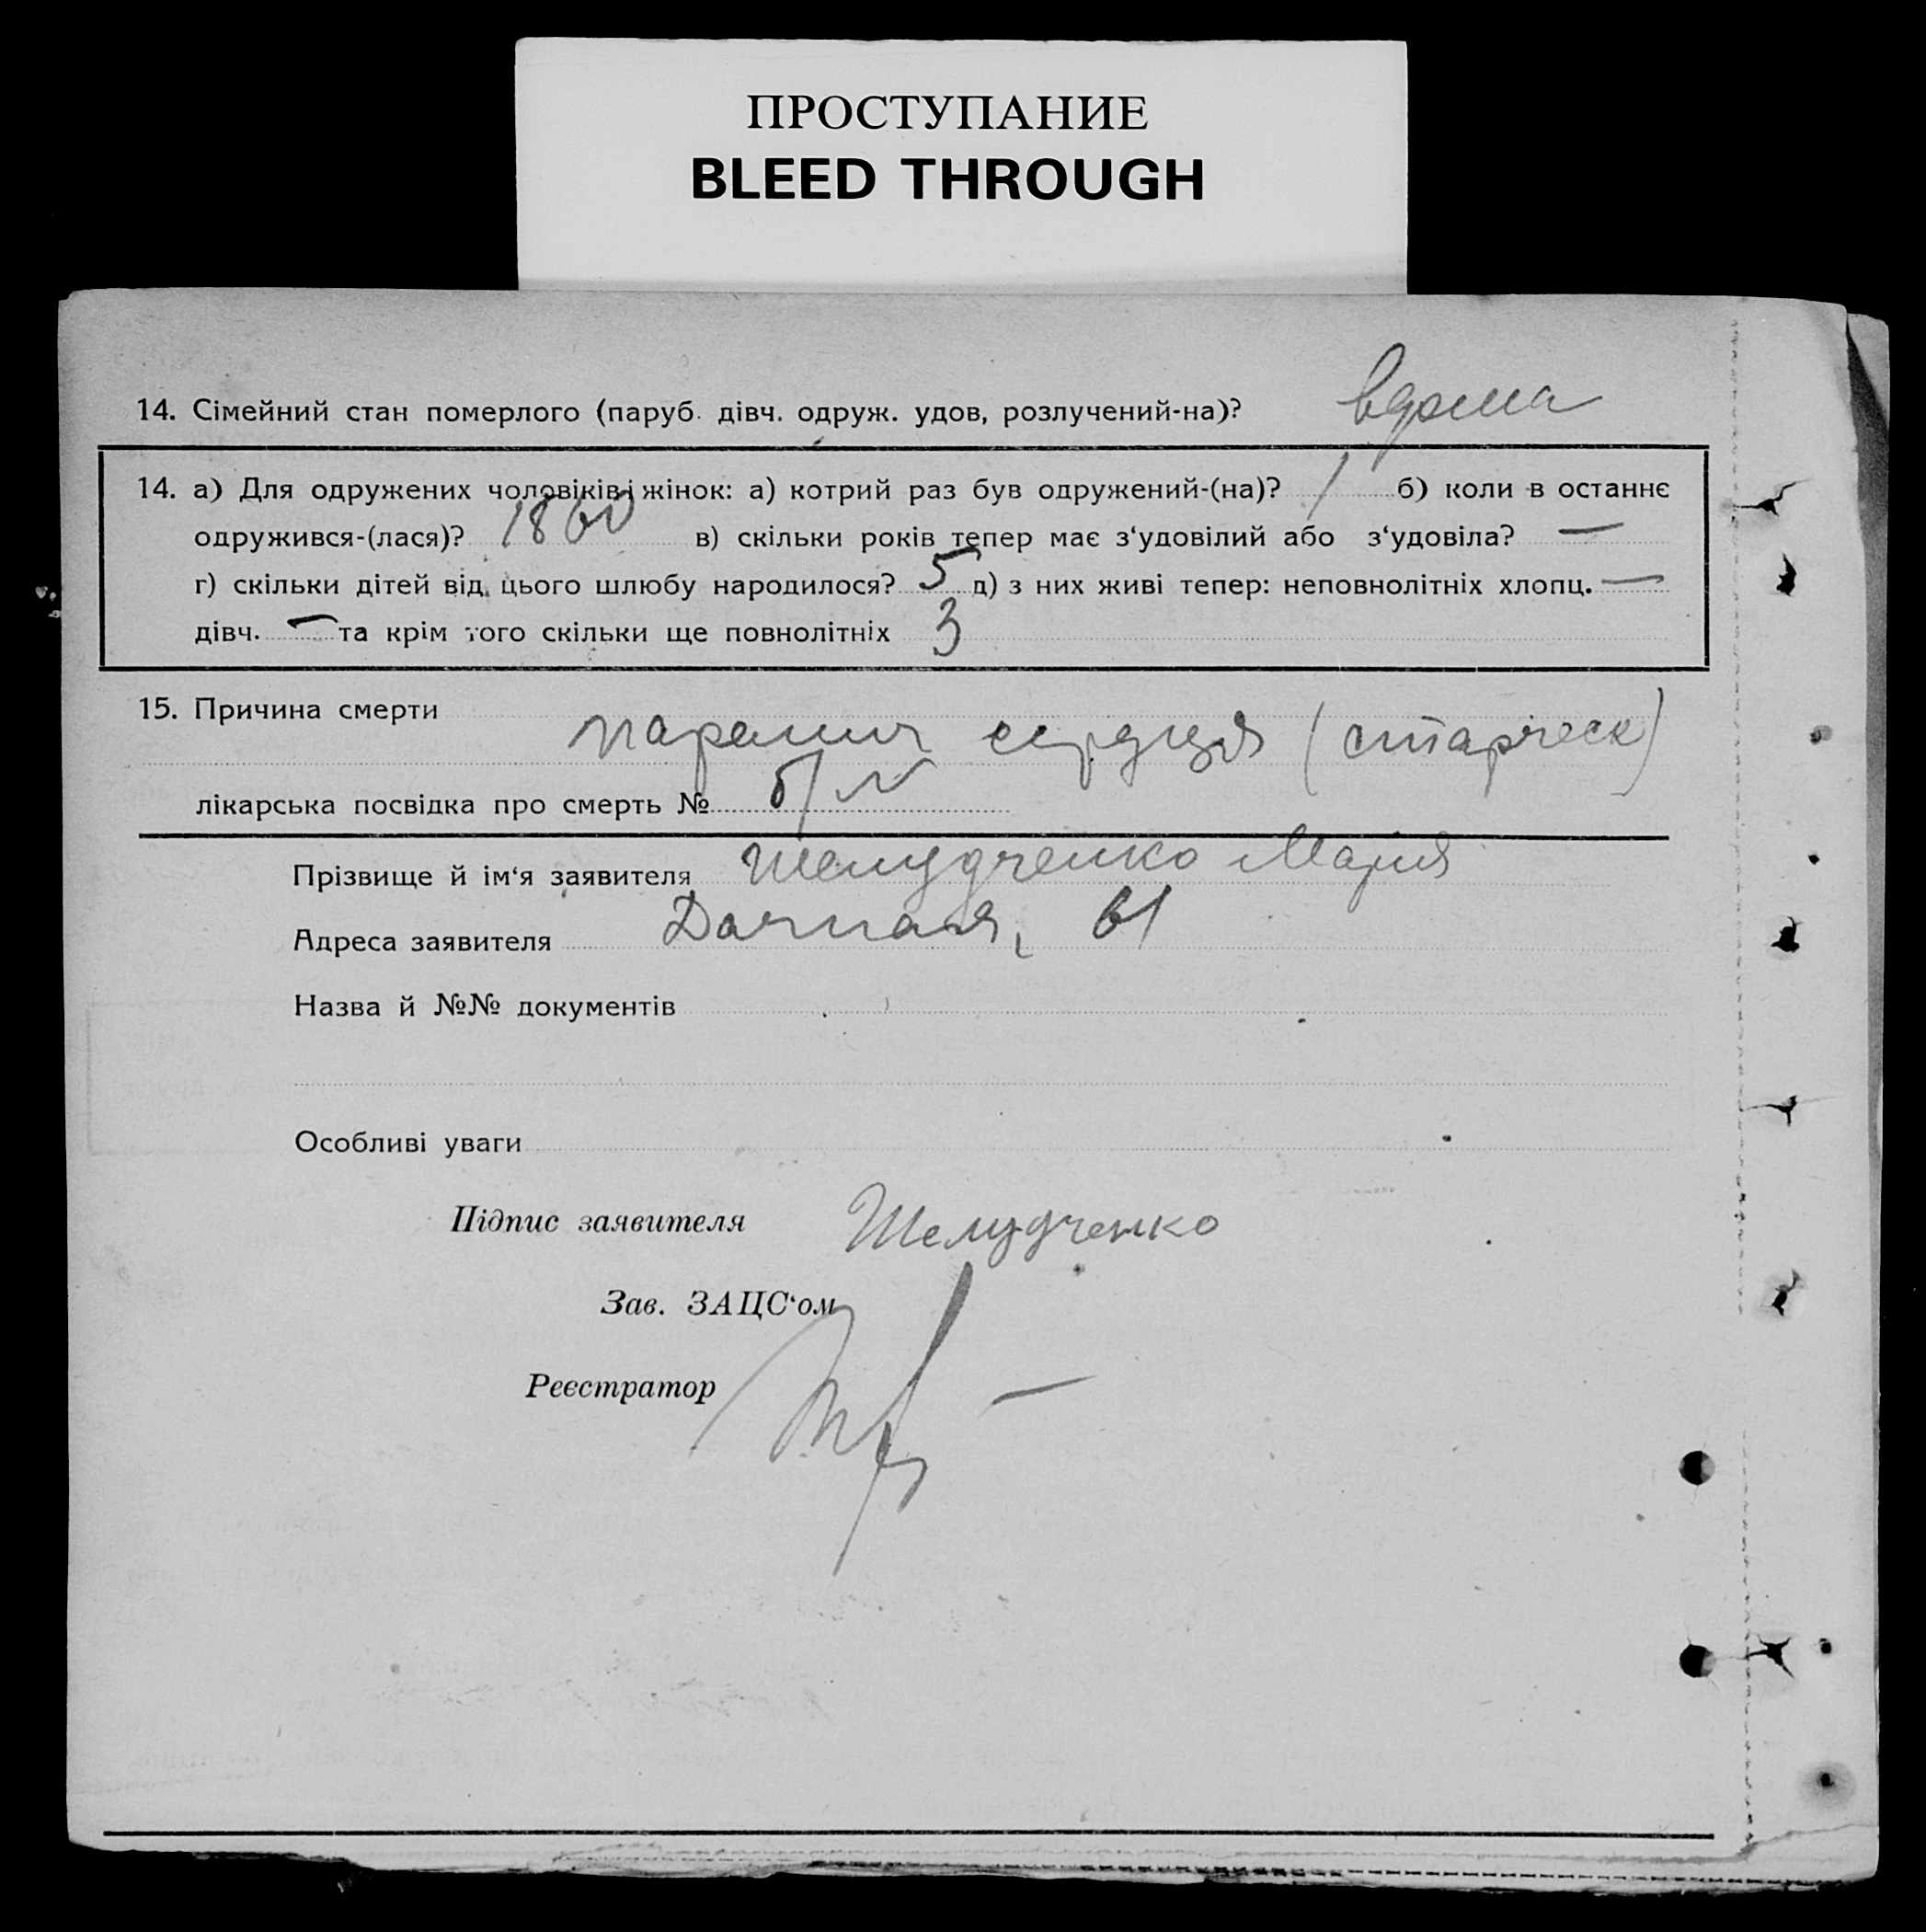 ПРОСТУПАНИЕ
BLEED THROUGH
14. Сімейний стан померлого (паруб. дівч. одруж. удов, розлучений-на)? вдома
14. а) Для одружених чоловіків і жінок: а) котрий раз був одружений-(на)? 1 б) коли в останнє
одружився-(лася)? 1860 в) скільки років тепер має з‘удовілий або з‘удовіла? —
г) скільки дітей від цього шлюбу народилося? 5 д) з них живі тепер: неповнолітніх хлопц. —
дівч. — та крім того скільки ще повнолітніх 3
15. Причина смерти
паралич сердця (старческ)
лікарська посвідка про смерть № б/N
Прізвище й ім‘я заявителя Шелудченко Мария
Адреса заявителя Дачная, 61
Назва й №№ документів
Особливі уваги
Підпис заявителя Шелудченко
Зав. ЗАЦС‘ом
Реєстратор